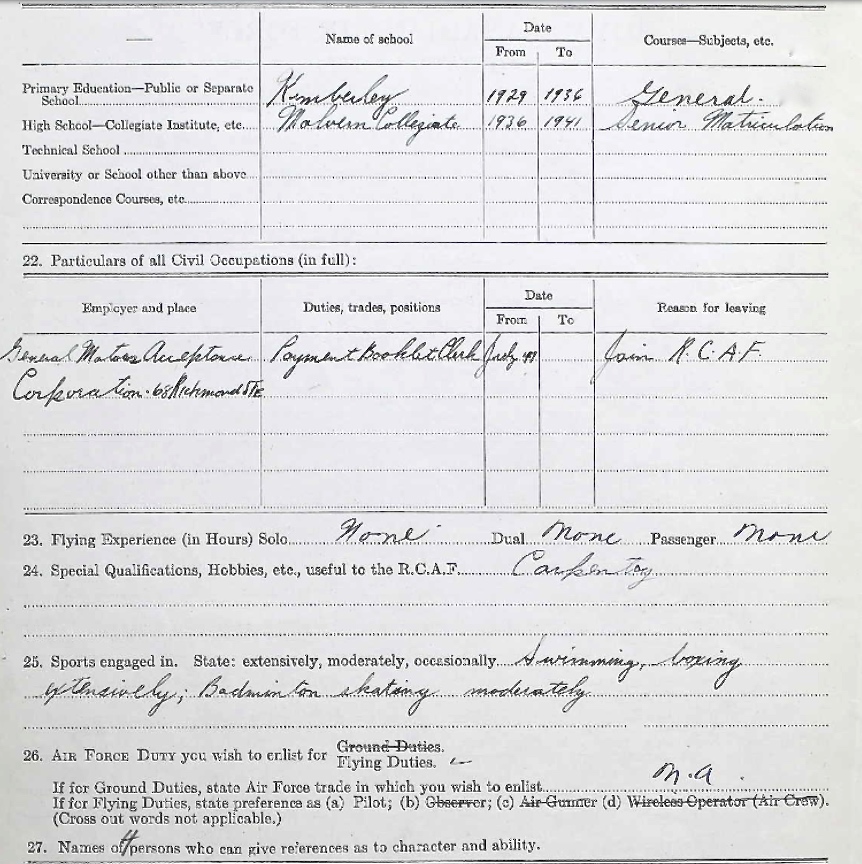 Name of school Date Courses—Subjects, etc.
From To
Primary Education—Public or Separate
School Kimberley 1929 1936 General.
High School—Collegiate Institute, etc. Malvern Collegiate 1936 1941 Senior Matriculation
Technical School
University or School other than above
Correspondence Courses, etc.
22. Particulars of all Civil Occupations (in full):
Employer and place Duties, trades, positions Date Reason for leaving
From To
General Motors Acceptance Payment Booklet Clerk July 41 Join R.C.A.F.
Corporation. 68 Richmond St E.
23. Flying Experience (in Hours) Solo None Dual None Passenger None
24. Special Qualifications, Hobbies, etc., useful to the R.C.A.F. Carpentry
25. Sports engaged in. State: extensively, moderately, occasionally Swimming, boxing
extensively; Badminton skating moderately
26. AIR FORCE DUTY you wish to enlist for Ground Duties.
Flying Duties.
If for Ground Duties, state Air Force trade in which you wish to enlist N.A.
If for Flying Duties, state preference as (a) Pilot; (b) Observer; (c) Air Gunner (d) Wireless Operator (Air Crew).
(Cross out words not applicable.)
27. Names of 4 persons who can give references as to character and ability.